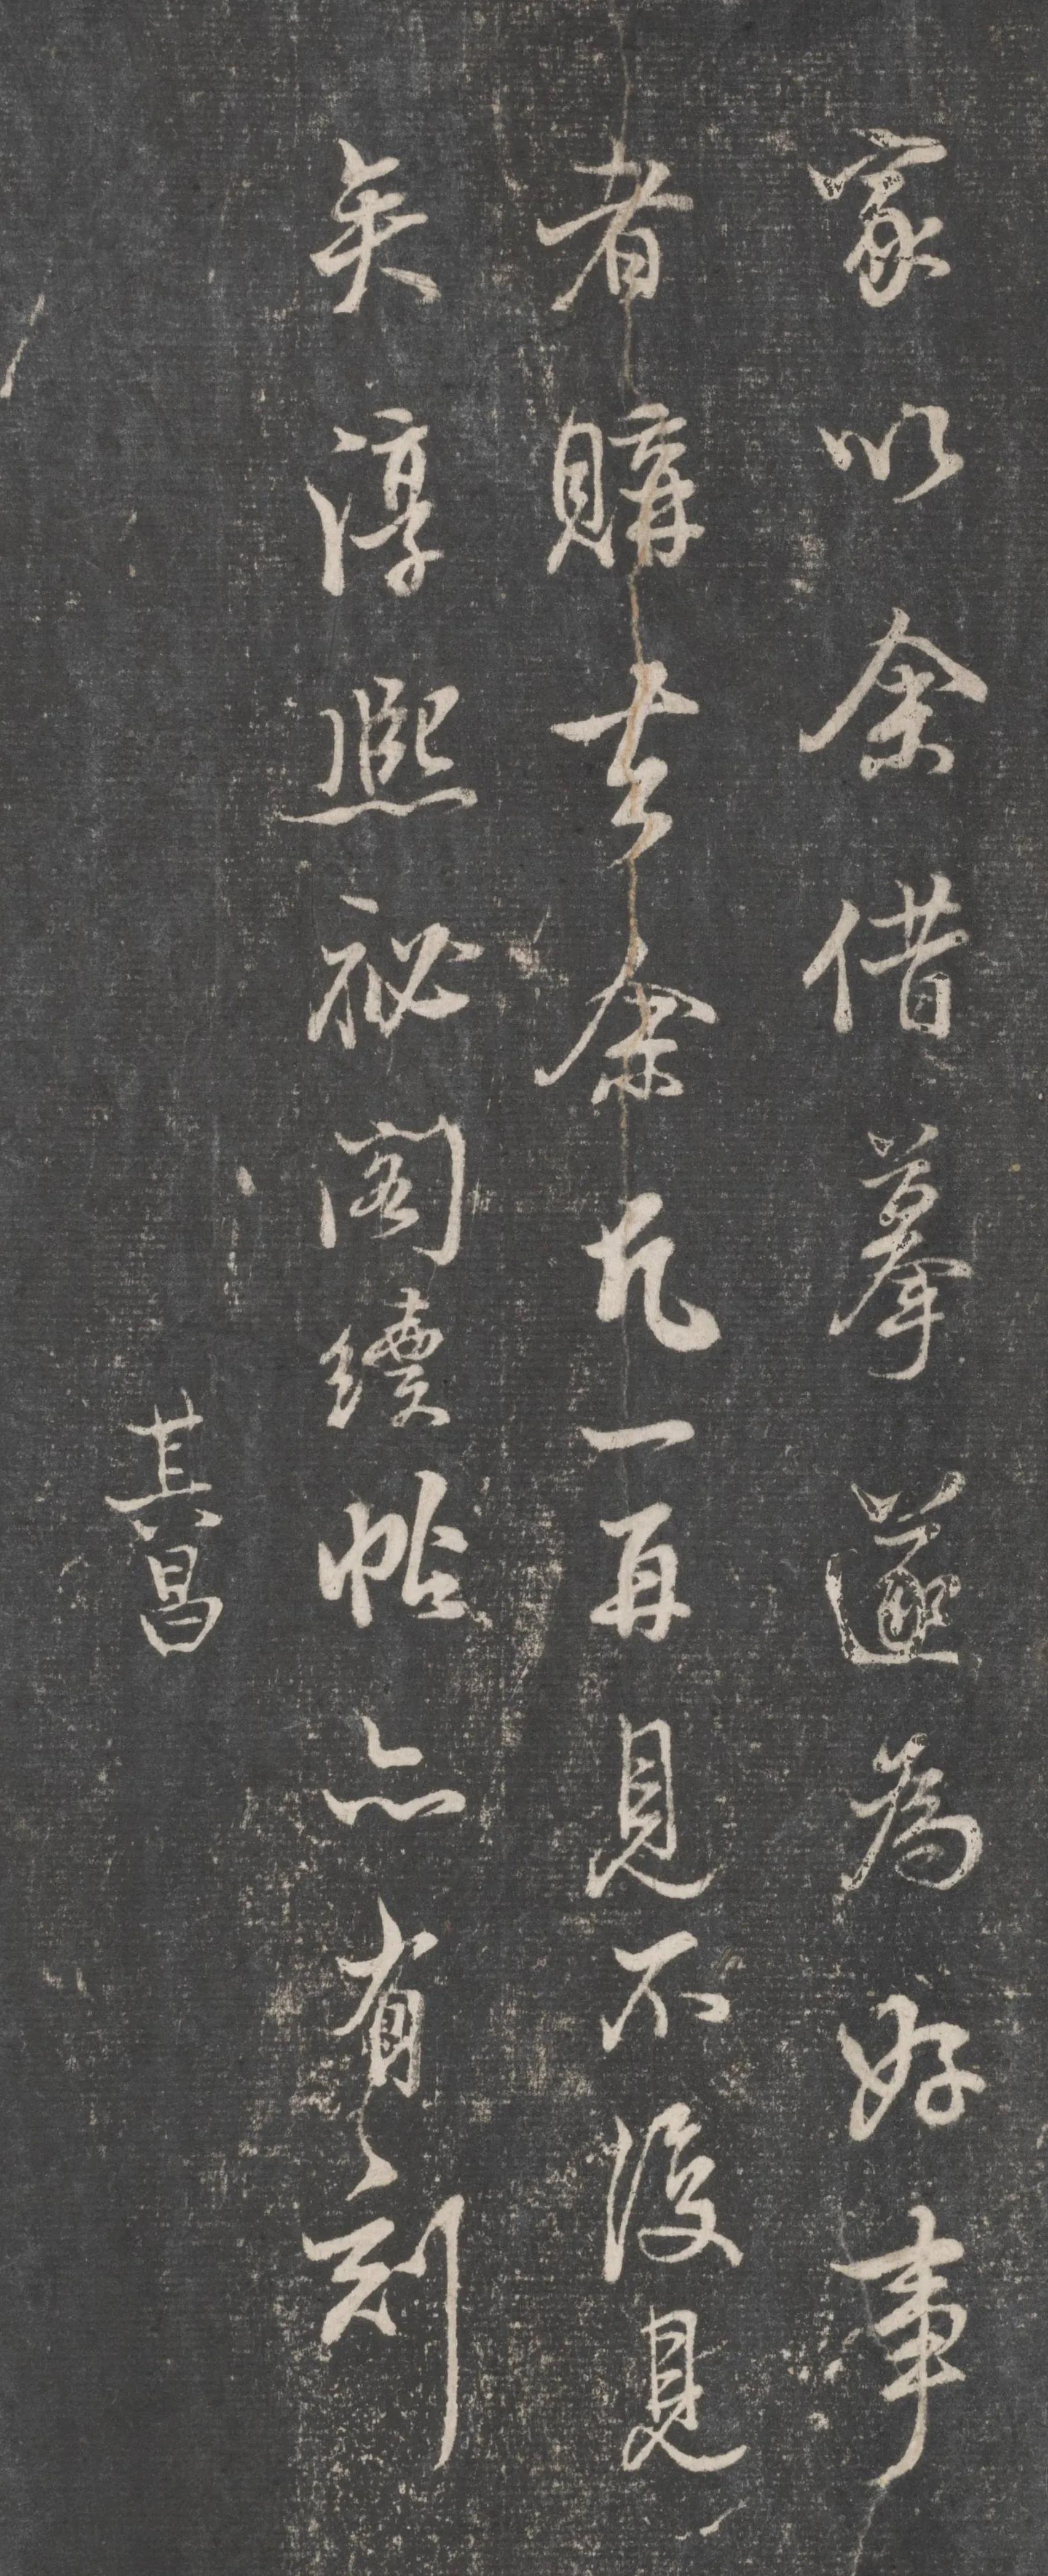 家以余借摹遂為好事
者購去余凡一再見不復見
矣淳熙祕閣續帖亦有刻
其昌